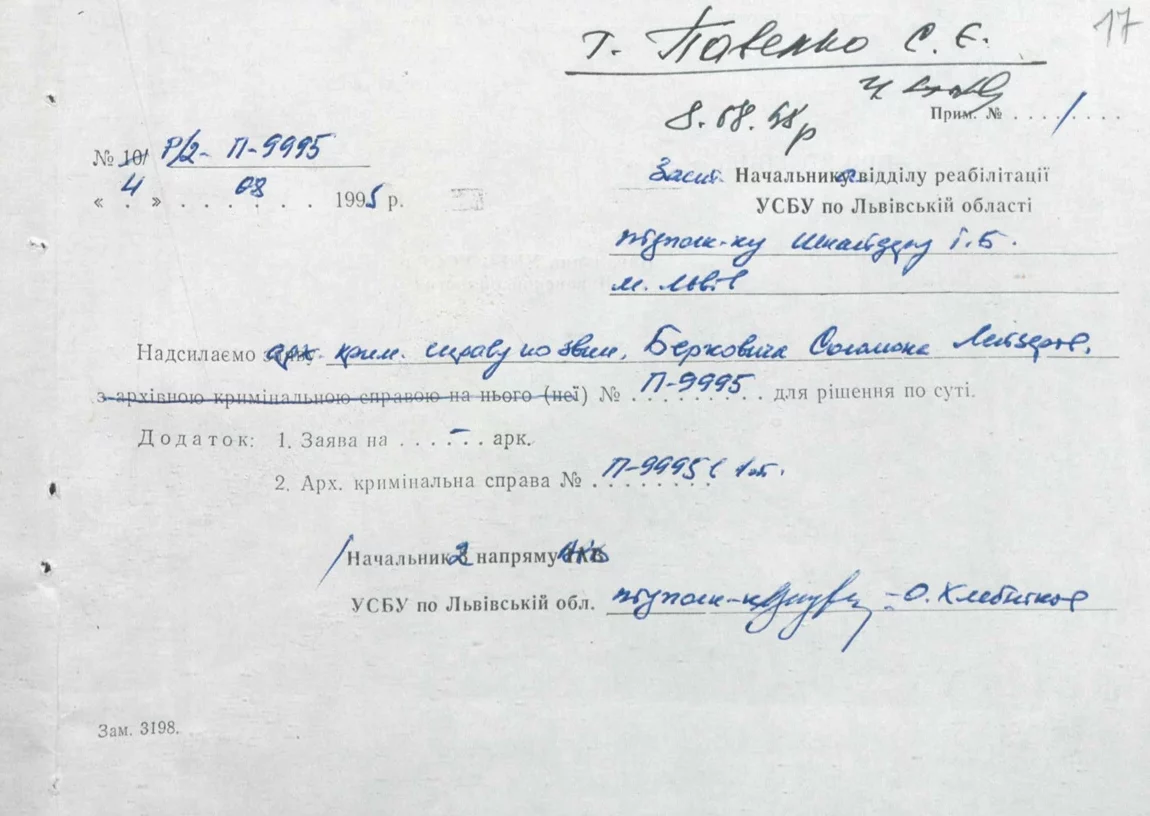 17
т. Павенко С. Є.
8.08.95 р
Прим. № . . . . / . . . .
№ 10/ Р/2- П-9995
« 4 » 08 1995 р.
Заст. Начальника відділу реабілітації
УСБУ по Львівській області
підполк-ку Шнайдеру І.Б.
м. Львів
Надсилаємо арх. крим. справу по звин. Берковича Соломона Лейзеров.
з архівною кримінальною справою на нього (неї) № П-9995 для рішення по суті.
Додаток: 1. Заява на . . . – . . арк.
2. Арх. кримінальна справа № П-9995 1 т.
Начальник 2 напряму
УСБУ по Львівській обл. підполк-к О. Хлебніков
Зам. 3198.